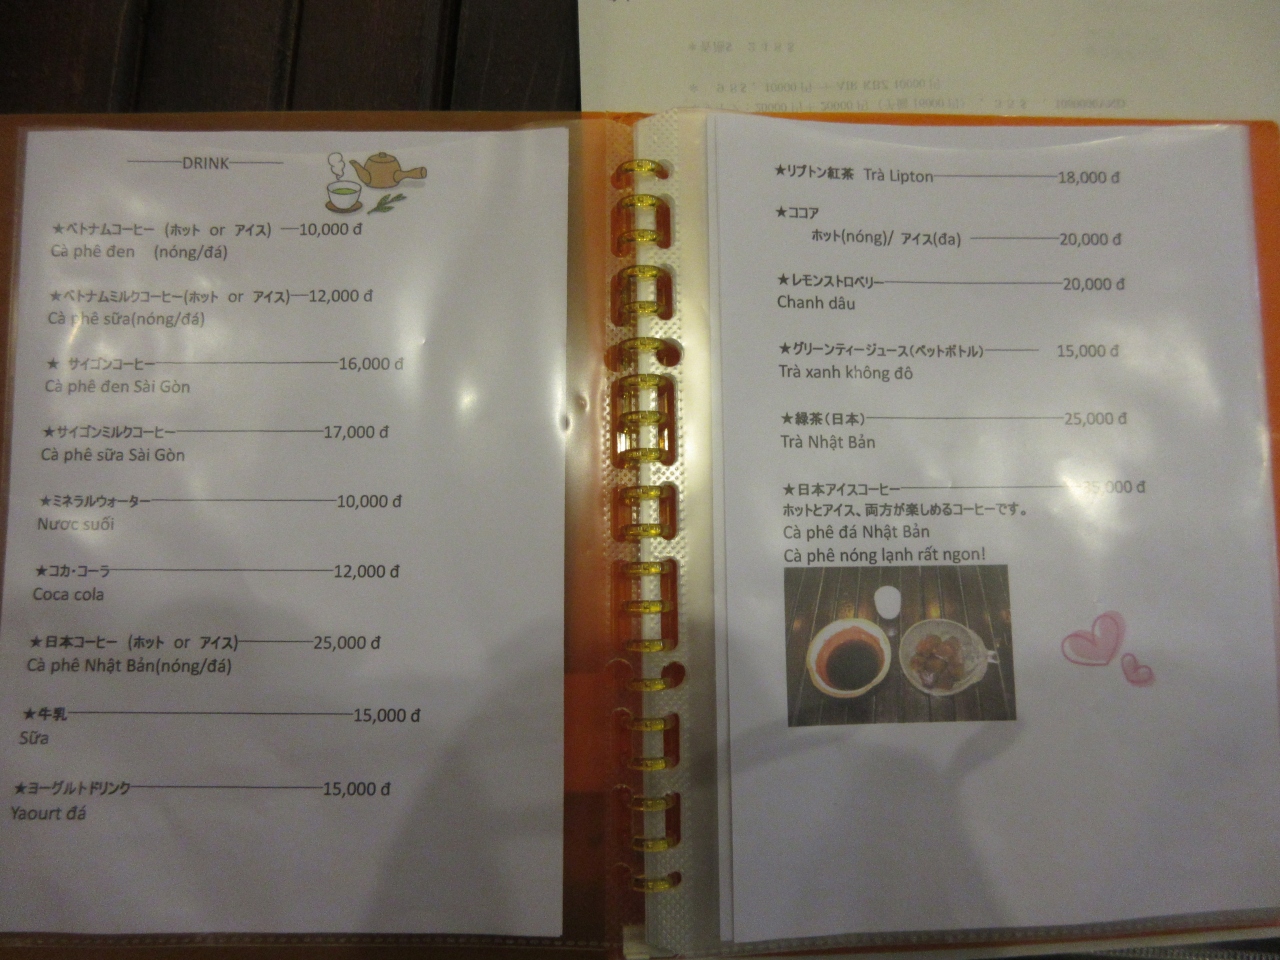 DRINK
★ベトナムコーヒー (ホット or アイス) 10,000 đ
Cà phê đen (nóng/đá)
★ベトナムミルクコーヒー(ホット or アイス) 12,000 đ
Cà phê sữa(nóng/đá)
★ サイゴンコーヒー 16,000 đ
Cà phê đen Sài Gòn
★サイゴンミルクコーヒー 17,000 đ
Cà phê sữa Sài Gòn
★ミネラルウォーター 10,000 đ
Nươc suối
★コカ・コーラ 12,000 đ
Coca cola
★日本コーヒー (ホット or アイス) 25,000 đ
Cà phê Nhật Bản(nóng/đá)
★牛乳 15,000 đ
Sữa
★ヨーグルトドリンク 15,000 đ
Yaourt đá
★リプトン紅茶 Trà Lipton 18,000 đ
★ココア
ホット(nóng)/ アイス(đa) 20,000 đ
★レモンストロベリー 20,000 đ
Chanh dâu
★グリーンティージュース(ペットボトル) 15,000 đ
Trà xanh không đô
★緑茶(日本) 25,000 đ
Trà Nhật Bản
★日本アイスコーヒー
ホットとアイス、両方が楽しめるコーヒーです。
Cà phê đá Nhật Bản
Cà phê nóng lạnh rất ngon!